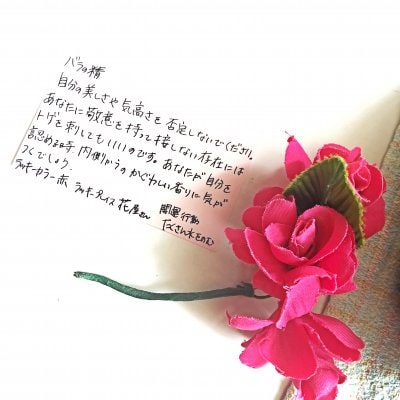 バラの精
自分の美しさや気高さを否定しないでください。
あなたに敬意を持って接しない存在には
トゲを刺してもいいのです。あなたが自分を
認める時 内側からのかぐわしい香りに気が
つくでしょう。
ラッキーカラー赤 ラッキープレイス 花屋さん 開運行動
たくさん水をのむ